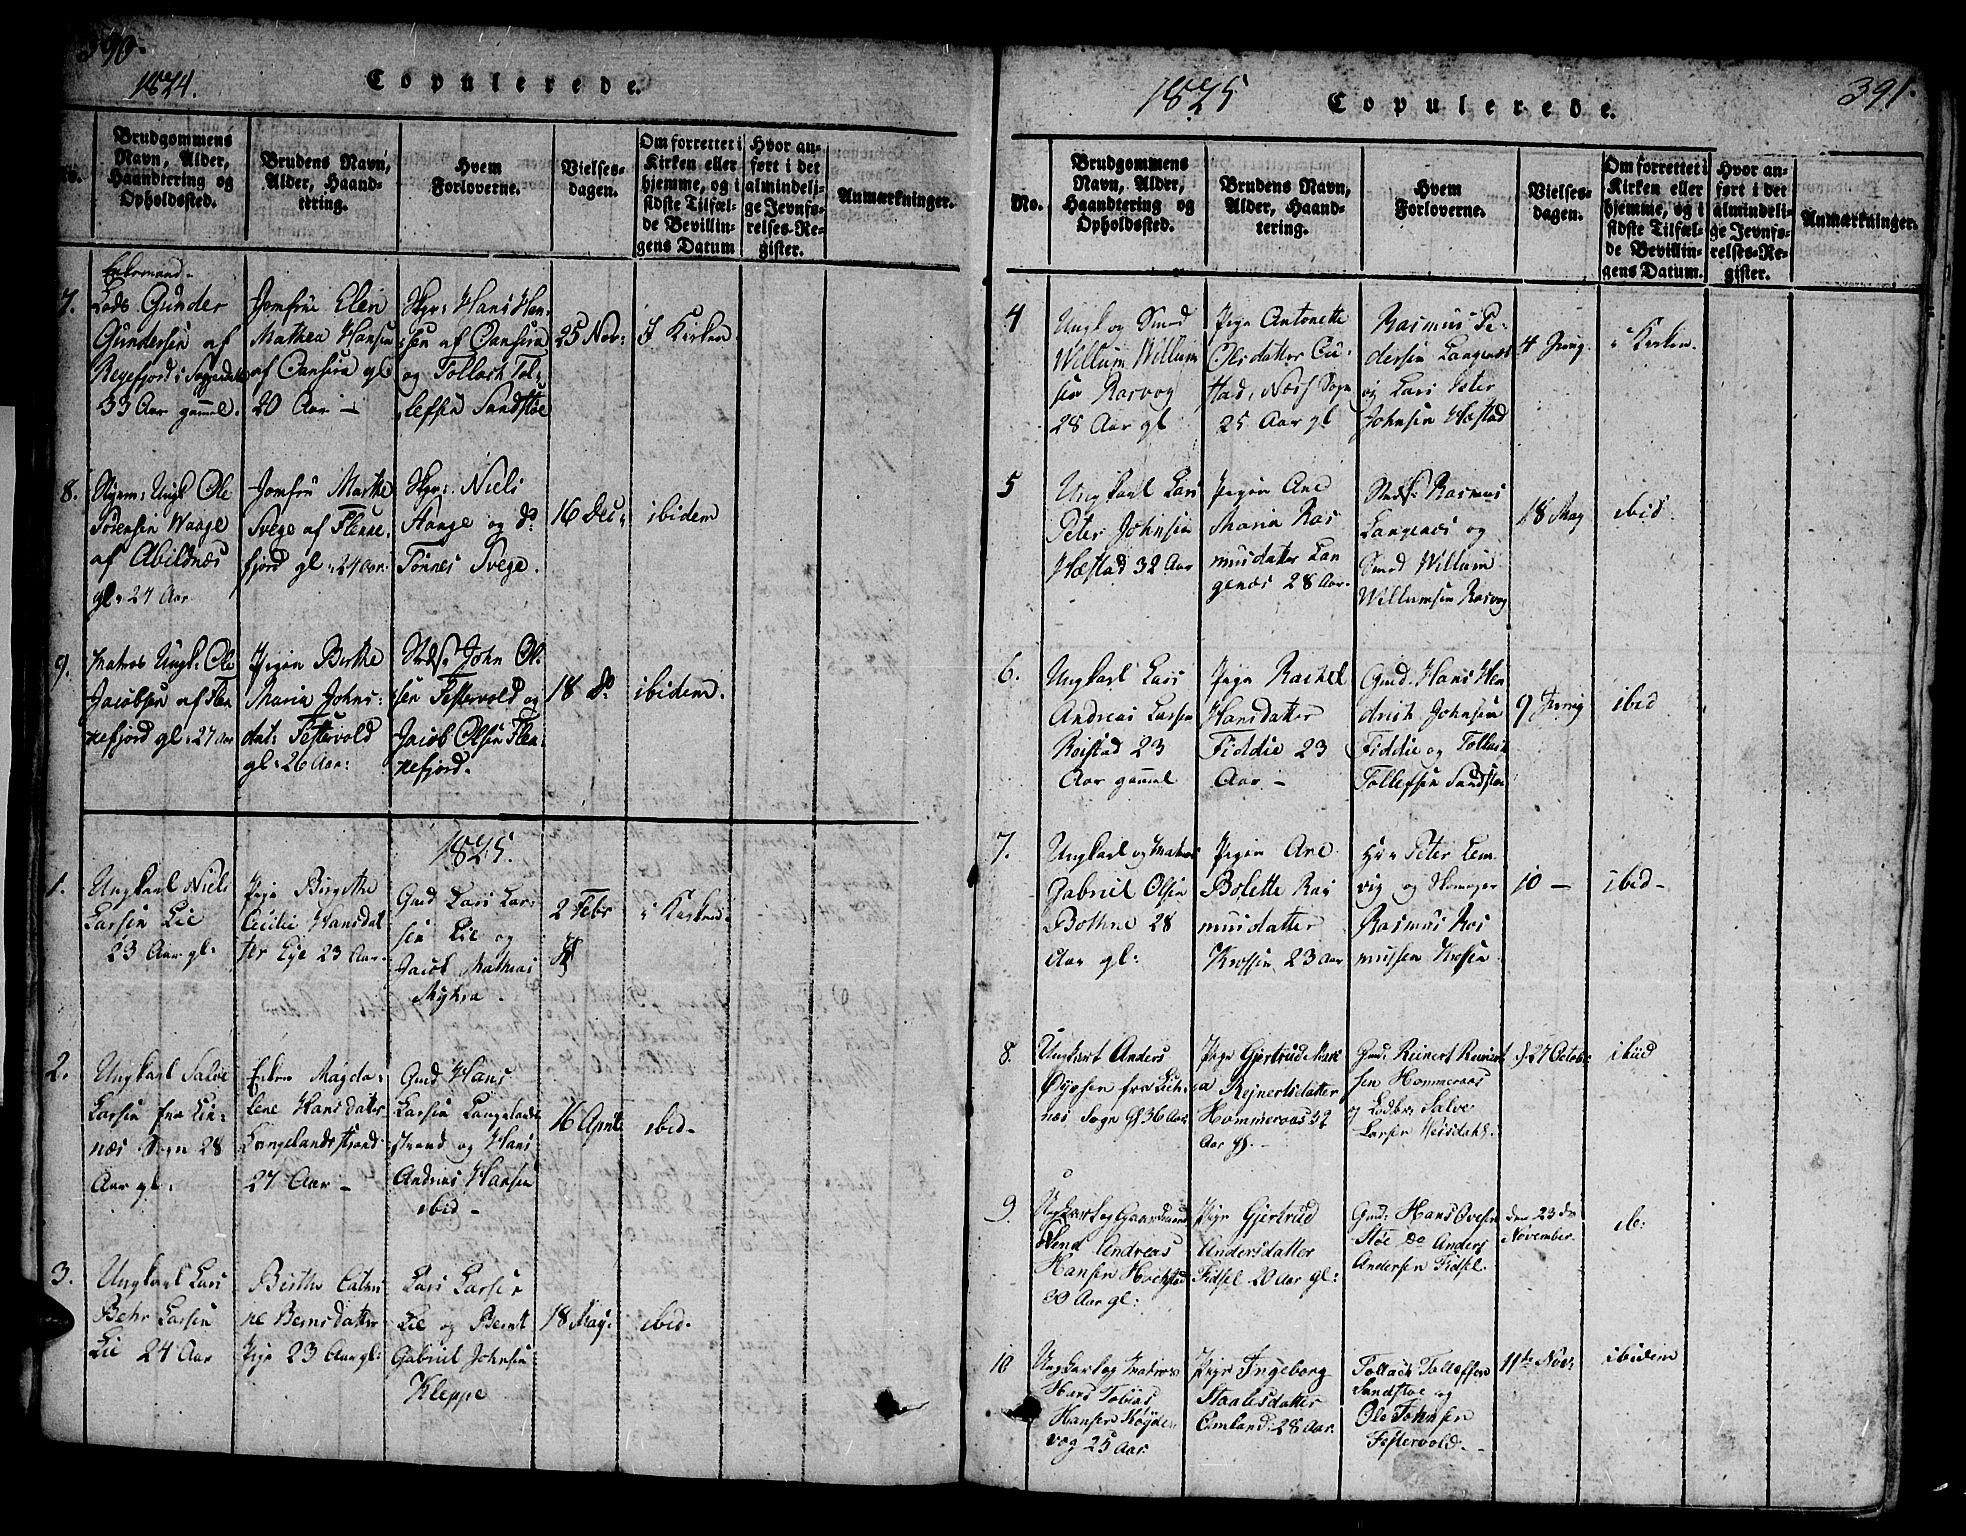 390.
1824.
Copulerede.
No.
Brudgommens
Navn, Alder,
Haandtering og
Opholdssted.
Brudens Navn,
Alder, Haand-
tering.
Hvem
Forloverne.
Vielses-
dagen.
Om forrettet i
Kirken eller
hjemme, og i
sidste Tilfæl-
de Bevillin-
gens Datum
Hvor an-
ført i det
almindeli-
ge Jevnfø-
relses-Re-
gister.
Anmærkninger.
7.
Enkemand
Lods Gunder
Gundersen af
Regefjord i Sogndal
33 Aar gammel.
Jomfru Elen
Mathea Hansen
af Oansira gl
20 Aar —
Skpr: Hans Han-
sen af Oansira
og Tollach Tol-
lefsen Sandstøe
25 Nov:
I Kirken.
8.
Styrm: Ungk Ole
Tørresen Waage
af Abildnæs
gl. 27 Aar
Jomfru Marthe
Svege af Flekke-
fjord gl. 24 Aar.
Skpr: Niels
Hauge og do
Tønnes Svege.
16 Dec:
ibidem
9.
Matros Ungk. Ole
Jacobsen af Flek-
kefjord gl. 27 Aar
Pigen Berthe
Maria Johns-
dat: Festervold
gl. 26 Aar:
John Ol-
sen Festervold og
Jacob Olsen Flek-
kefjord.
18 do
ibidem.
1825.
1.
Ungkarl Niels
Larsen Lie
23 Aar gl:
Pige Birgithe
Cecilie Hansdat
ter Eje 23 Aar.
Gmd Lars Lar-
sen Lie og
Jacob Mathias
Myhra.
2 Febr
i Kirken
2.
Ungkarl Salve
Larsen fra Lin-
næs Sogn 28
Aar gl.
Enken Magda-
lene Hansdatter
Langelandsstrand
27 Aar —
Gmd Hans
Larsen Langelands
strand og Hans
Andreas Hansen
ibid —
16 April
ibid —
3.
Ungkarl Lars
Behr Larsen
Lie 24 Aar
Berthe Cathri
ne Berntsdatter
Pige 23 Aar gl:
Lars Larsen
Lie og Bernt
Gabriel Johnsen
Kleppe
18 May.
ibid.
1825
Copulerede.
391.
No.
Brudgommens
Navn, Alder,
Haandtering og
Opholdssted.
Brudens Navn,
Alder, Haand-
tering.
Hvem
Forloverne.
Vielses-
dagen.
Om forrettet i
Kirken eller
hjemme, og i
sidste Tilfæl-
de Bevillin-
gens Datum.
Hvor an-
ført i det
almindeli-
ge Jevnfø-
relses-Re-
gister.
Anmærkninger.
4
Ungk og Smed
Willum Willum
sen Rasvog
28 Aar gl
Pige Antonette
Olsdatter
Næss Sogn
25 Aar gl
Rasmus Pe-
dersen Langenæs
og Lars Peter
Johnsen Hæstad
4 Juny.
i Kirken.
5
Ungkarl Lars
Peter Johnsen
Hæstad 32 Aar
Pigen Ane
Maria Ras
musdatter Lan
genæs 28 Aar.
Rasmus
Langenæs og
Smed Willum
Willumsen Rasvog
18 May
ibid.
6.
Ungkarl Lars
Andreas Larsen
Røistad 23
Aar gammel
Pige Rachel
Hansdatter
Fiddie 23
Aar —
Gmd. Hans Hen
drich Johnsen
Fiddie og Tollach
Tollefsen Sandstøe
9 Juny
ibid
7.
Ungkarl og Matros
Gabriel Olsen
Bothne 28
Aar gl:
Pigen Ane
Bolette Ras
musdatter
Krossen 23 Aar
Peter Lem
vig og
Rasmus Ras
mussen Krossen
10 —
ibid —
8.
Ungkarl Anders
fra Lin-
næs Sogn gl 36 Aar.
Pige Gjertrud Mari
a Rejnertsdatter
Hommeraas 32
Aar gl. —
Gmd: Reinert Reinert
sen Hommeraas
og Salve
Larsen
d. 27 October
ibiid
9.
Ungkarl og Gaardmand
Svend Andreas
Hansen
30 Aar gl:
Pige Gjertrud
Andersdatter
Fidsel 20 Aar gl:
Gmd: Hans Ovesen
Støe do Anders
Andersen Fidsel.
den 23de
November.
ib:
10
Ungkarl og Matros
Hans Tobias
Hansen Høyde-
vog 25 Aar.
Pige Ingeborg
Staalesdatter
Eimland: 28 Aar.
Tollach Tollefsen
Sandstøe og
Ole Johnsen
Festervold. —
11te Nov:
ibidem